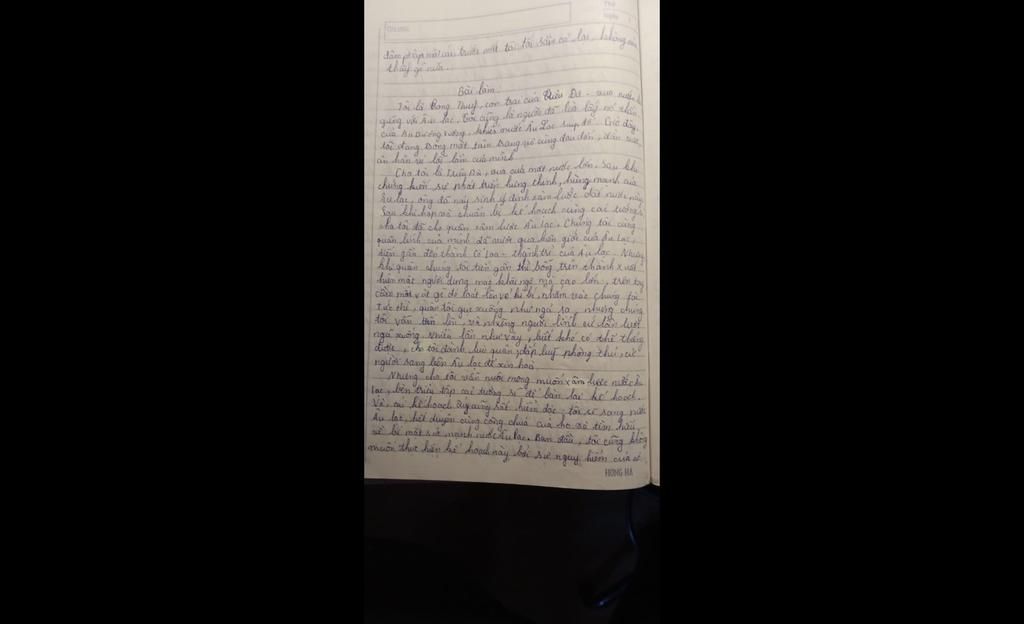 thấy gì nữa.
Bài làm
Tôi là Trọng Thuỷ, con trai của Triệu Đà - vua nước
giềng với Âu Lạc. Tôi cũng là người đã lừa lấy nỏ thần
của An Dương Vương, khiến nước Âu Lạc sụp đổ. Giờ đây,
tôi đang trong một tâm trạng vô cùng đau đớn, dằn
ân hận vì lỗi lầm của mình
Cha tôi là Triệu Đà, vua của một nước lớn. Sau khi
chứng kiến sự phát triển hưng thịnh, hùng mạnh của
Âu Lạc, ông đã nảy sinh ý định xâm lược đất nước này
Sau khi họp và chuẩn bị kế hoạch cùng các tướng sĩ
cha tôi đã cho quân xâm lược Âu Lạc. Chúng tôi cùng
quân lính của mình đã vượt qua biên giới của Âu Lạc,
tiến gần đến thành Cổ Loa - thành trì của Âu Lạc. Nhưng
khi quân chúng tôi tiến gần thì bỗng trên thành x
hiện một người đứng mặc khôi ngô mà cao lớn, trên tay
cầm một vật gì đó toát lên vẻ kì bí, nhắm vào chúng tôi
Tức thì, quân tôi gục xuống như ngả rạ, nhưng chúng
tôi vẫn tiến lên, và những người lính cứ lần lượt
ngã xuống. Nhiều lần như vậy, biết khó có thể thắng
được, cha tôi đành lui quân, đắp luỹ phòng thủ, cử
người sang bên Âu Lạc để xin hoà
Nhưng cha tôi vẫn nuôi mong muốn xâm lược nước Âu
Lạc, bèn triệu tập các tướng sĩ để bàn lại kế hoạch.
Và, cái kế hoạch ấy cũng rất hiểm độc: tôi sẽ sang nước
Âu Lạc, kết duyên cùng công chúa của họ để tìm hiểu
về bí mật sức mạnh nước Âu Lạc. Ban đầu, tôi cũng không
muốn thực hiện kế hoạch này bởi sự nguy hiểm của nó
HONG HA